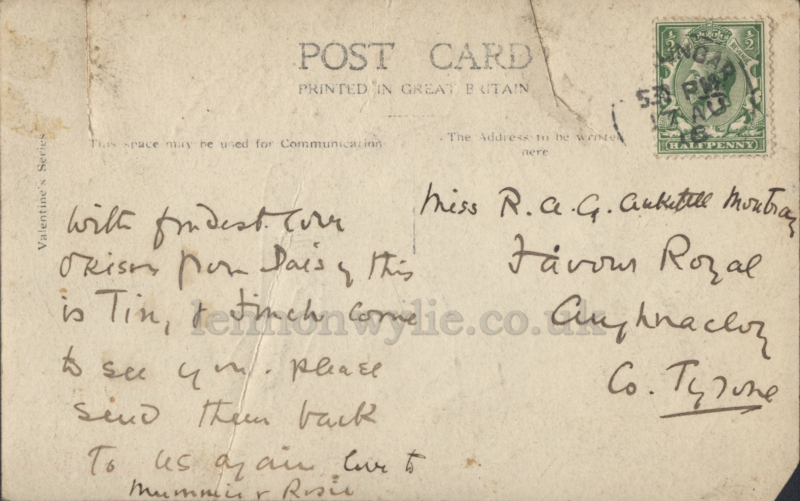 POST CARD
PRINTED IN GREAT BRITAIN
This space may be used for Communication
The Address to be written
here
Valentine's Series
½ ½
HALFPENNY
5 30 PM
17 AU
16
With fondest love
& kisses from Daisy this
is Tin, & Finch come
to see you. please
send them back
To us again love to
Mummie & Rosie
Miss R. A. G. Anketell Montray
Favour Royal
Aughnacloy
Co. Tyrone
lennonwylie.co.uk